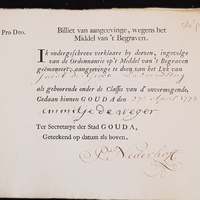 Pro Deo.
Billiet van aangeevinge, wegens het
Middel van 't Begraven.
Ik ondergeschreve verklaare by dezen, ingevolge
van de Ordonnantie op 't Middel van 't Begraven
geëmaneert; aangeevinge te doen van het Lyk van
als gehoorende onder de Classis van d'onvermogende.
Gedaan binnen GOUDA den 27 April 1773
emmetje de weger
Ter Secretarye der Stad GOUDA,
Geteekend op datum als boven.